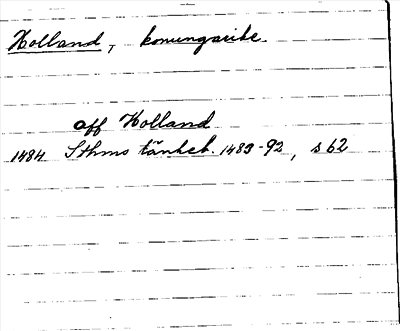 Holland, konungarike.
aff Holland
1484 Sthms tänkeb. 1483-92, s 62